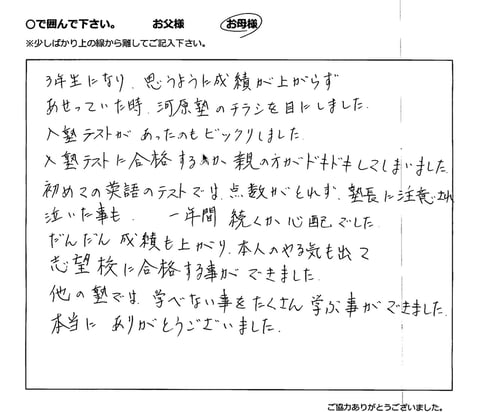 ○で囲んで下さい。 お父様 お母様
※少しばかり上の線から離してご記入下さい。
3年生になり、思うように成績が上がらず
あせっていた時、河原塾のチラシを目にしました。
入塾テストがあったのもビックリしました。
入塾テストに合格するか親の方がドキドキしてしまいました。
初めての英語のテストでは、点数がとれず、塾長に注意され
泣いた事も、 一年間続くか心配でした。
だんだん成績も上がり、本人のやる気も出て
志望校に合格する事ができました。
他の塾では、学べない事をたくさん学ぶ事ができました。
本当に ありがとうございました。
ご協力ありがとうございました。